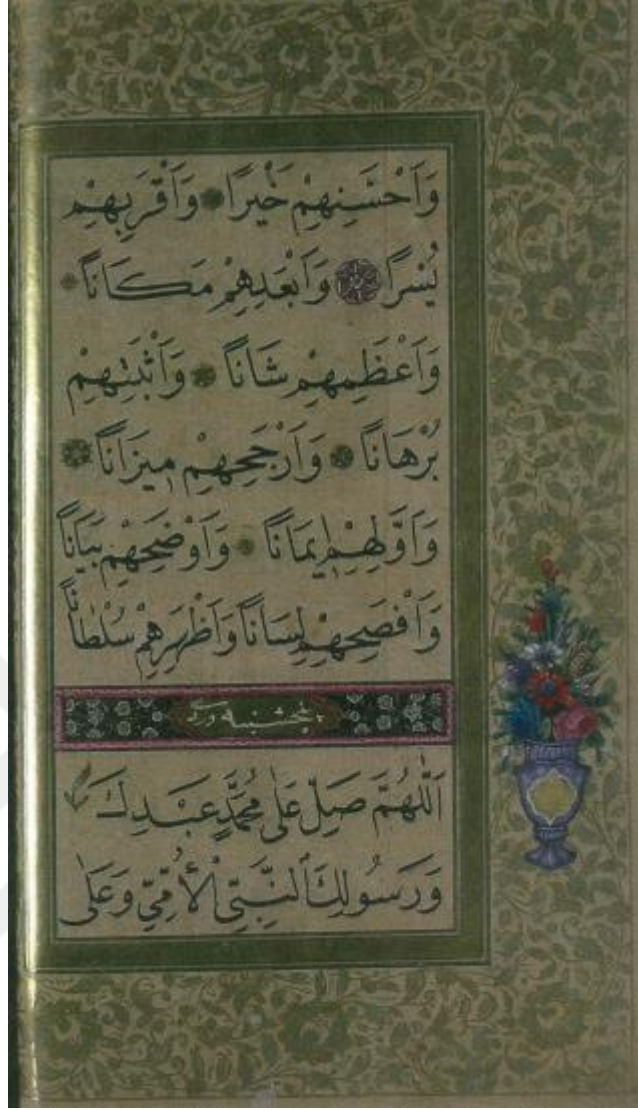 وَاَحْسَنِهِمْ خَيْرًا وَاَقْرَبِهِمْ
يُسْرًا وَاَبْعَدِهِمْ مَكَانًا
وَاَعْظَمِهِمْ شَانًا وَاَثْبَتِهِمْ
بُرْهَانًا وَاَرْجَحِهِمْ مِيزَانًا
وَاَوَّلِهِمْ اِيمَانًا وَاَوْضَحِهِمْ بَيَانًا
وَاَفْصَحِهِمْ لِسَانًا وَاَظْهَرِهِمْ سُلْطَانًا
پنجشنبه وردی
اَللّٰهُمَّ صَلِّ عَلٰى مُحَمَّدٍ عَبْدِكَ
وَرَسُولِكَ النَّبِىِّ الْاُمِّىِّ وَعَلٰى